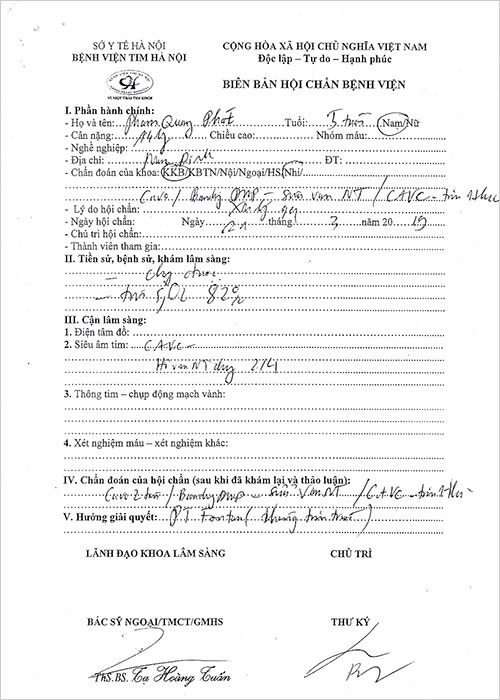 SỞ Y TẾ HÀ NỘI
BỆNH VIỆN TIM HÀ NỘI
CỘNG HÒA XÃ HỘI CHỦ NGHĨA VIỆT NAM
Độc lập – Tự do – Hạnh phúc
BIÊN BẢN HỘI CHẨN BỆNH VIỆN
I. Phần hành chính:
- Họ và tên: Phạm Quang Phát Tuổi: 5 tuổi Nam/Nữ
- Cân nặng: 14kg Chiều cao: Nhóm máu:
- Nghề nghiệp:
- Địa chỉ: Nam Định ĐT:
- Chẩn đoán của khoa: KKB/KBTN/Nội/Ngoại/HS/Nhi/
Cavo / Banding ĐMP – van NT / CAVC
- Lý do hội chẩn:
- Ngày hội chẩn: Ngày 21 tháng 3 năm 2019
- Chủ trì hội chẩn:
- Thành viên tham gia:
II. Tiền sử, bệnh sử, khám lâm sàng:
82%
III. Cận lâm sàng:
1. Điện tâm đồ:
2. Siêu âm tim: CAVC
Hở van NT 2/4
3. Thông tim – chụp động mạch vành:
4. Xét nghiệm máu – xét nghiệm khác:
IV. Chẩn đoán của hội chẩn (sau khi đã khám lại và thảo luận):
Cavo 2 / Banding ĐMP – van NT / CAVC
V. Hướng giải quyết: PT Fontan
LÃNH ĐẠO KHOA LÂM SÀNG
CHỦ TRÌ
BÁC SỸ NGOẠI/TMCT/GMHS
THƯ KÝ
ThS.BS. Tạ Hoàng Tuấn